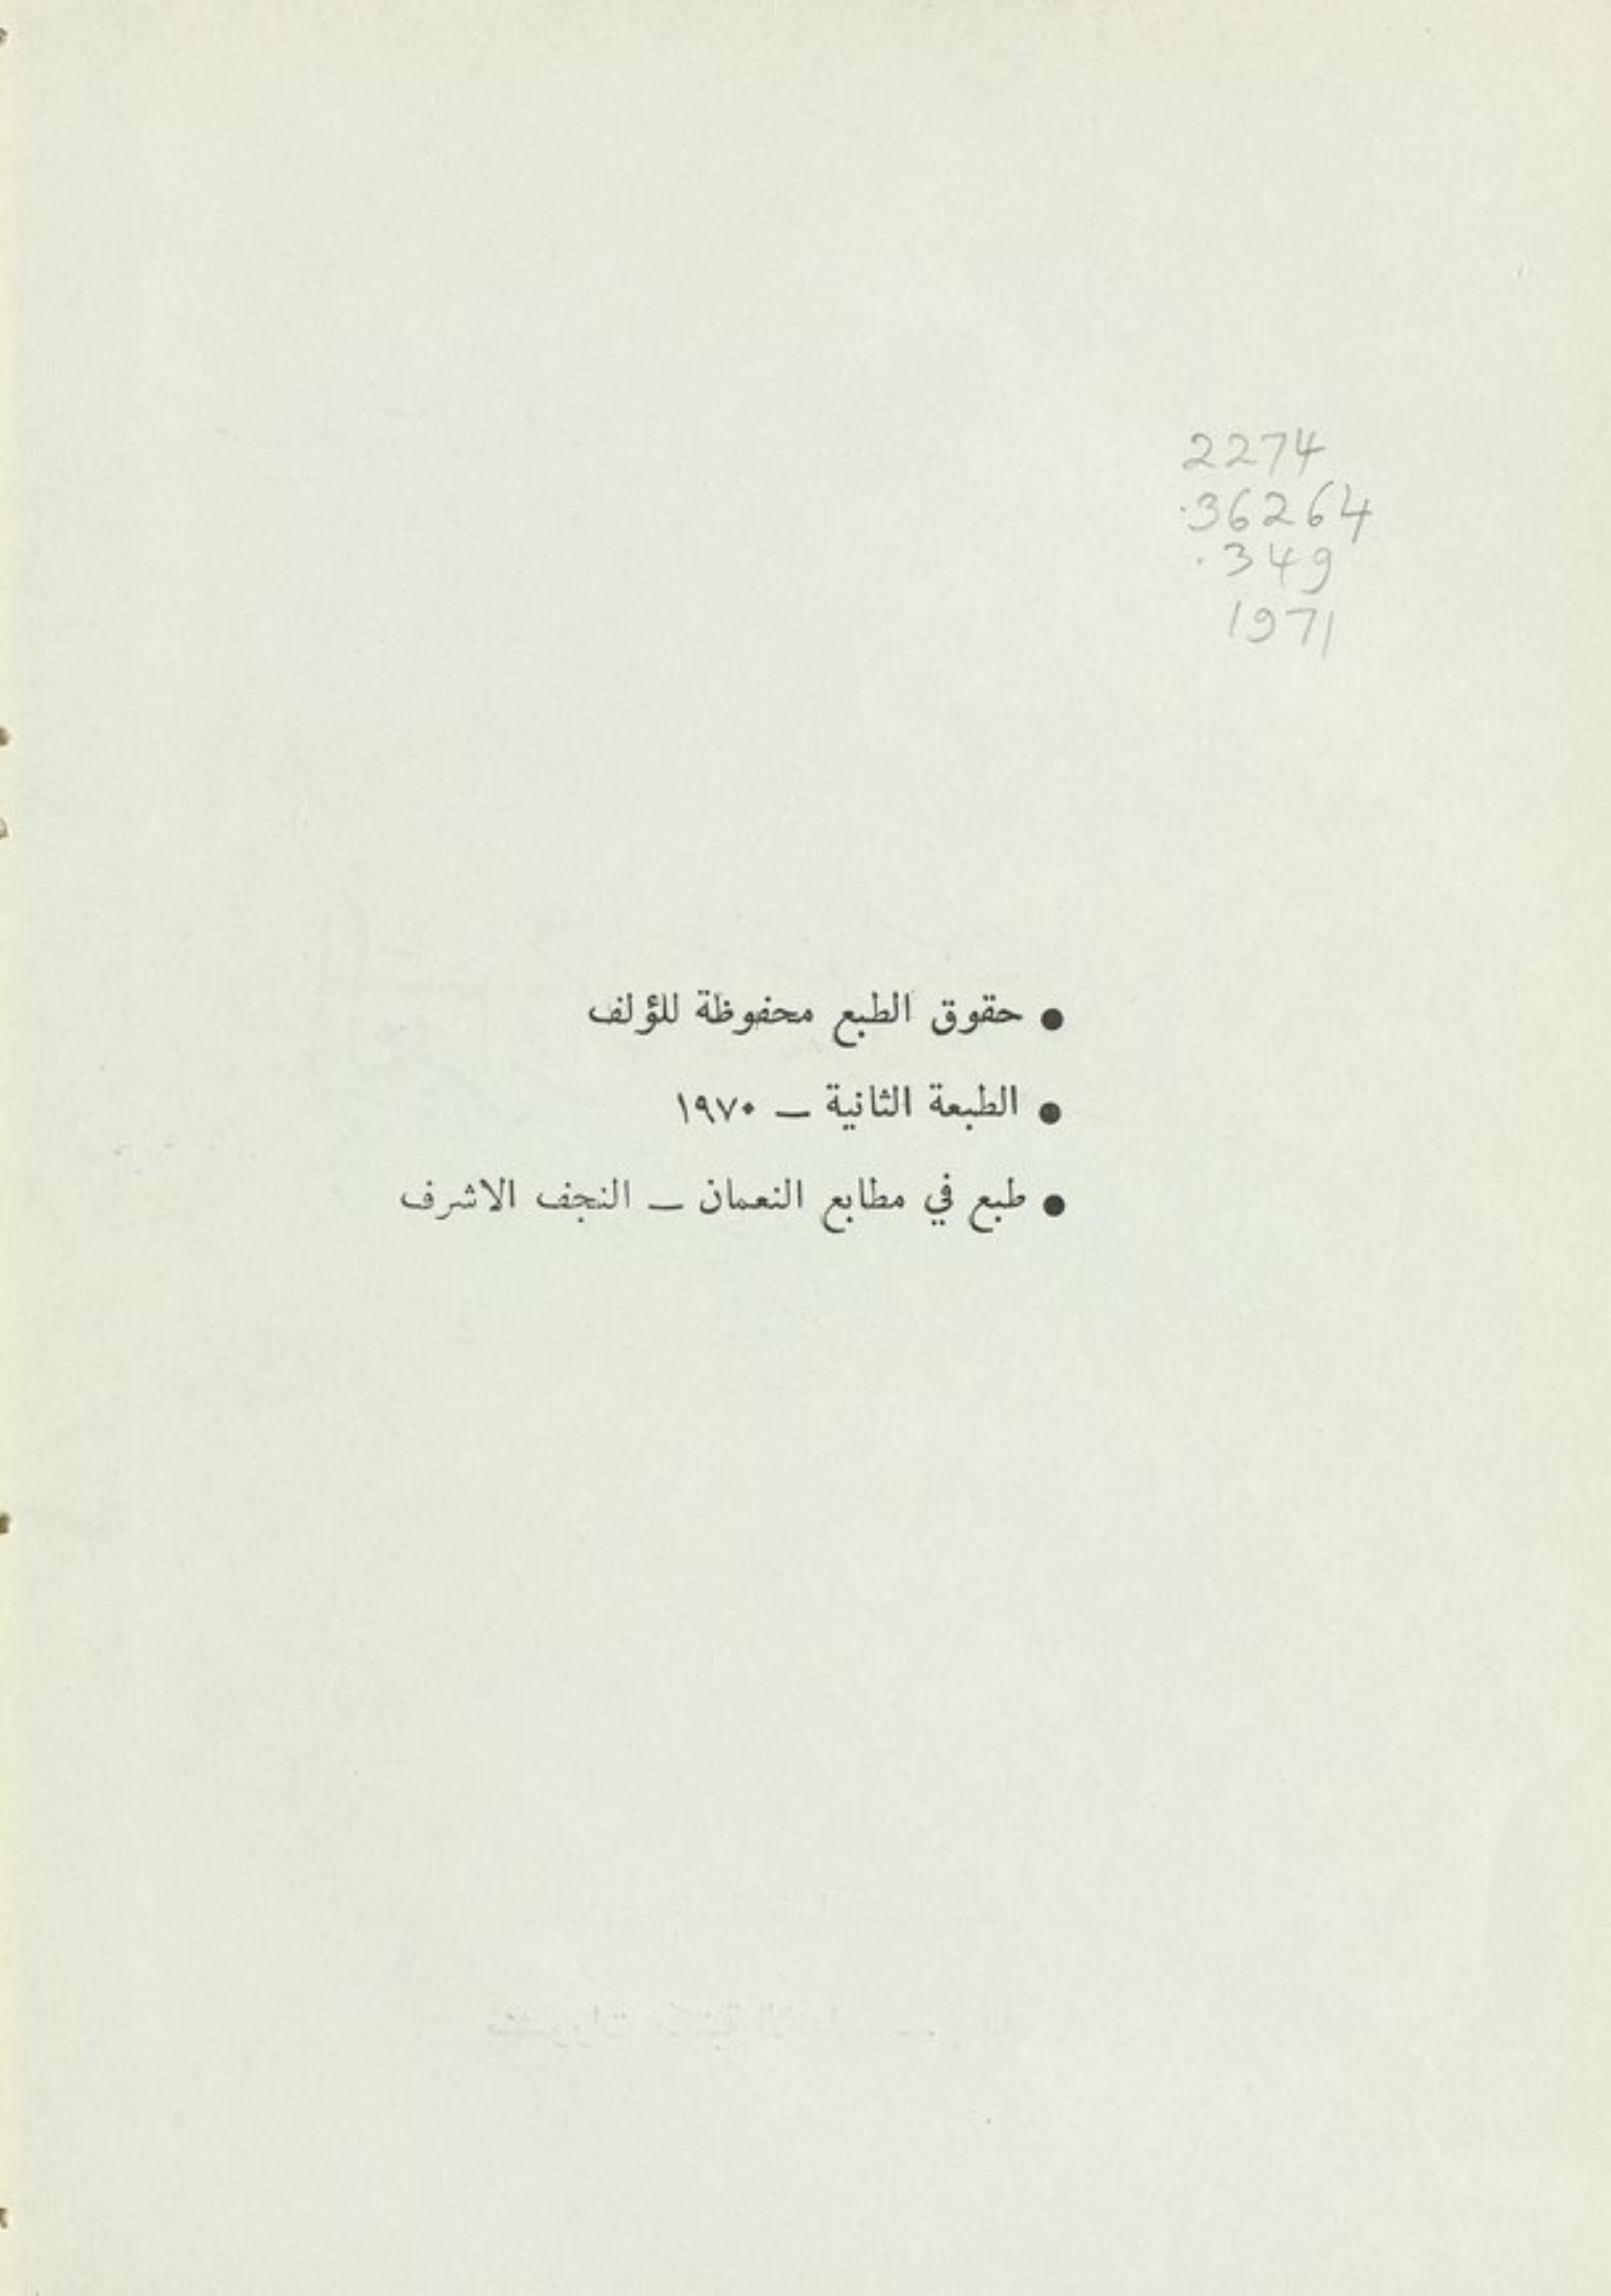 2274
.36264
.349
1971
● حقوق الطبع محفوظة للؤلف
● الطبعة الثانية — ١٩٧٠
● طبع في مطابع النعمان — النجف الاشرف